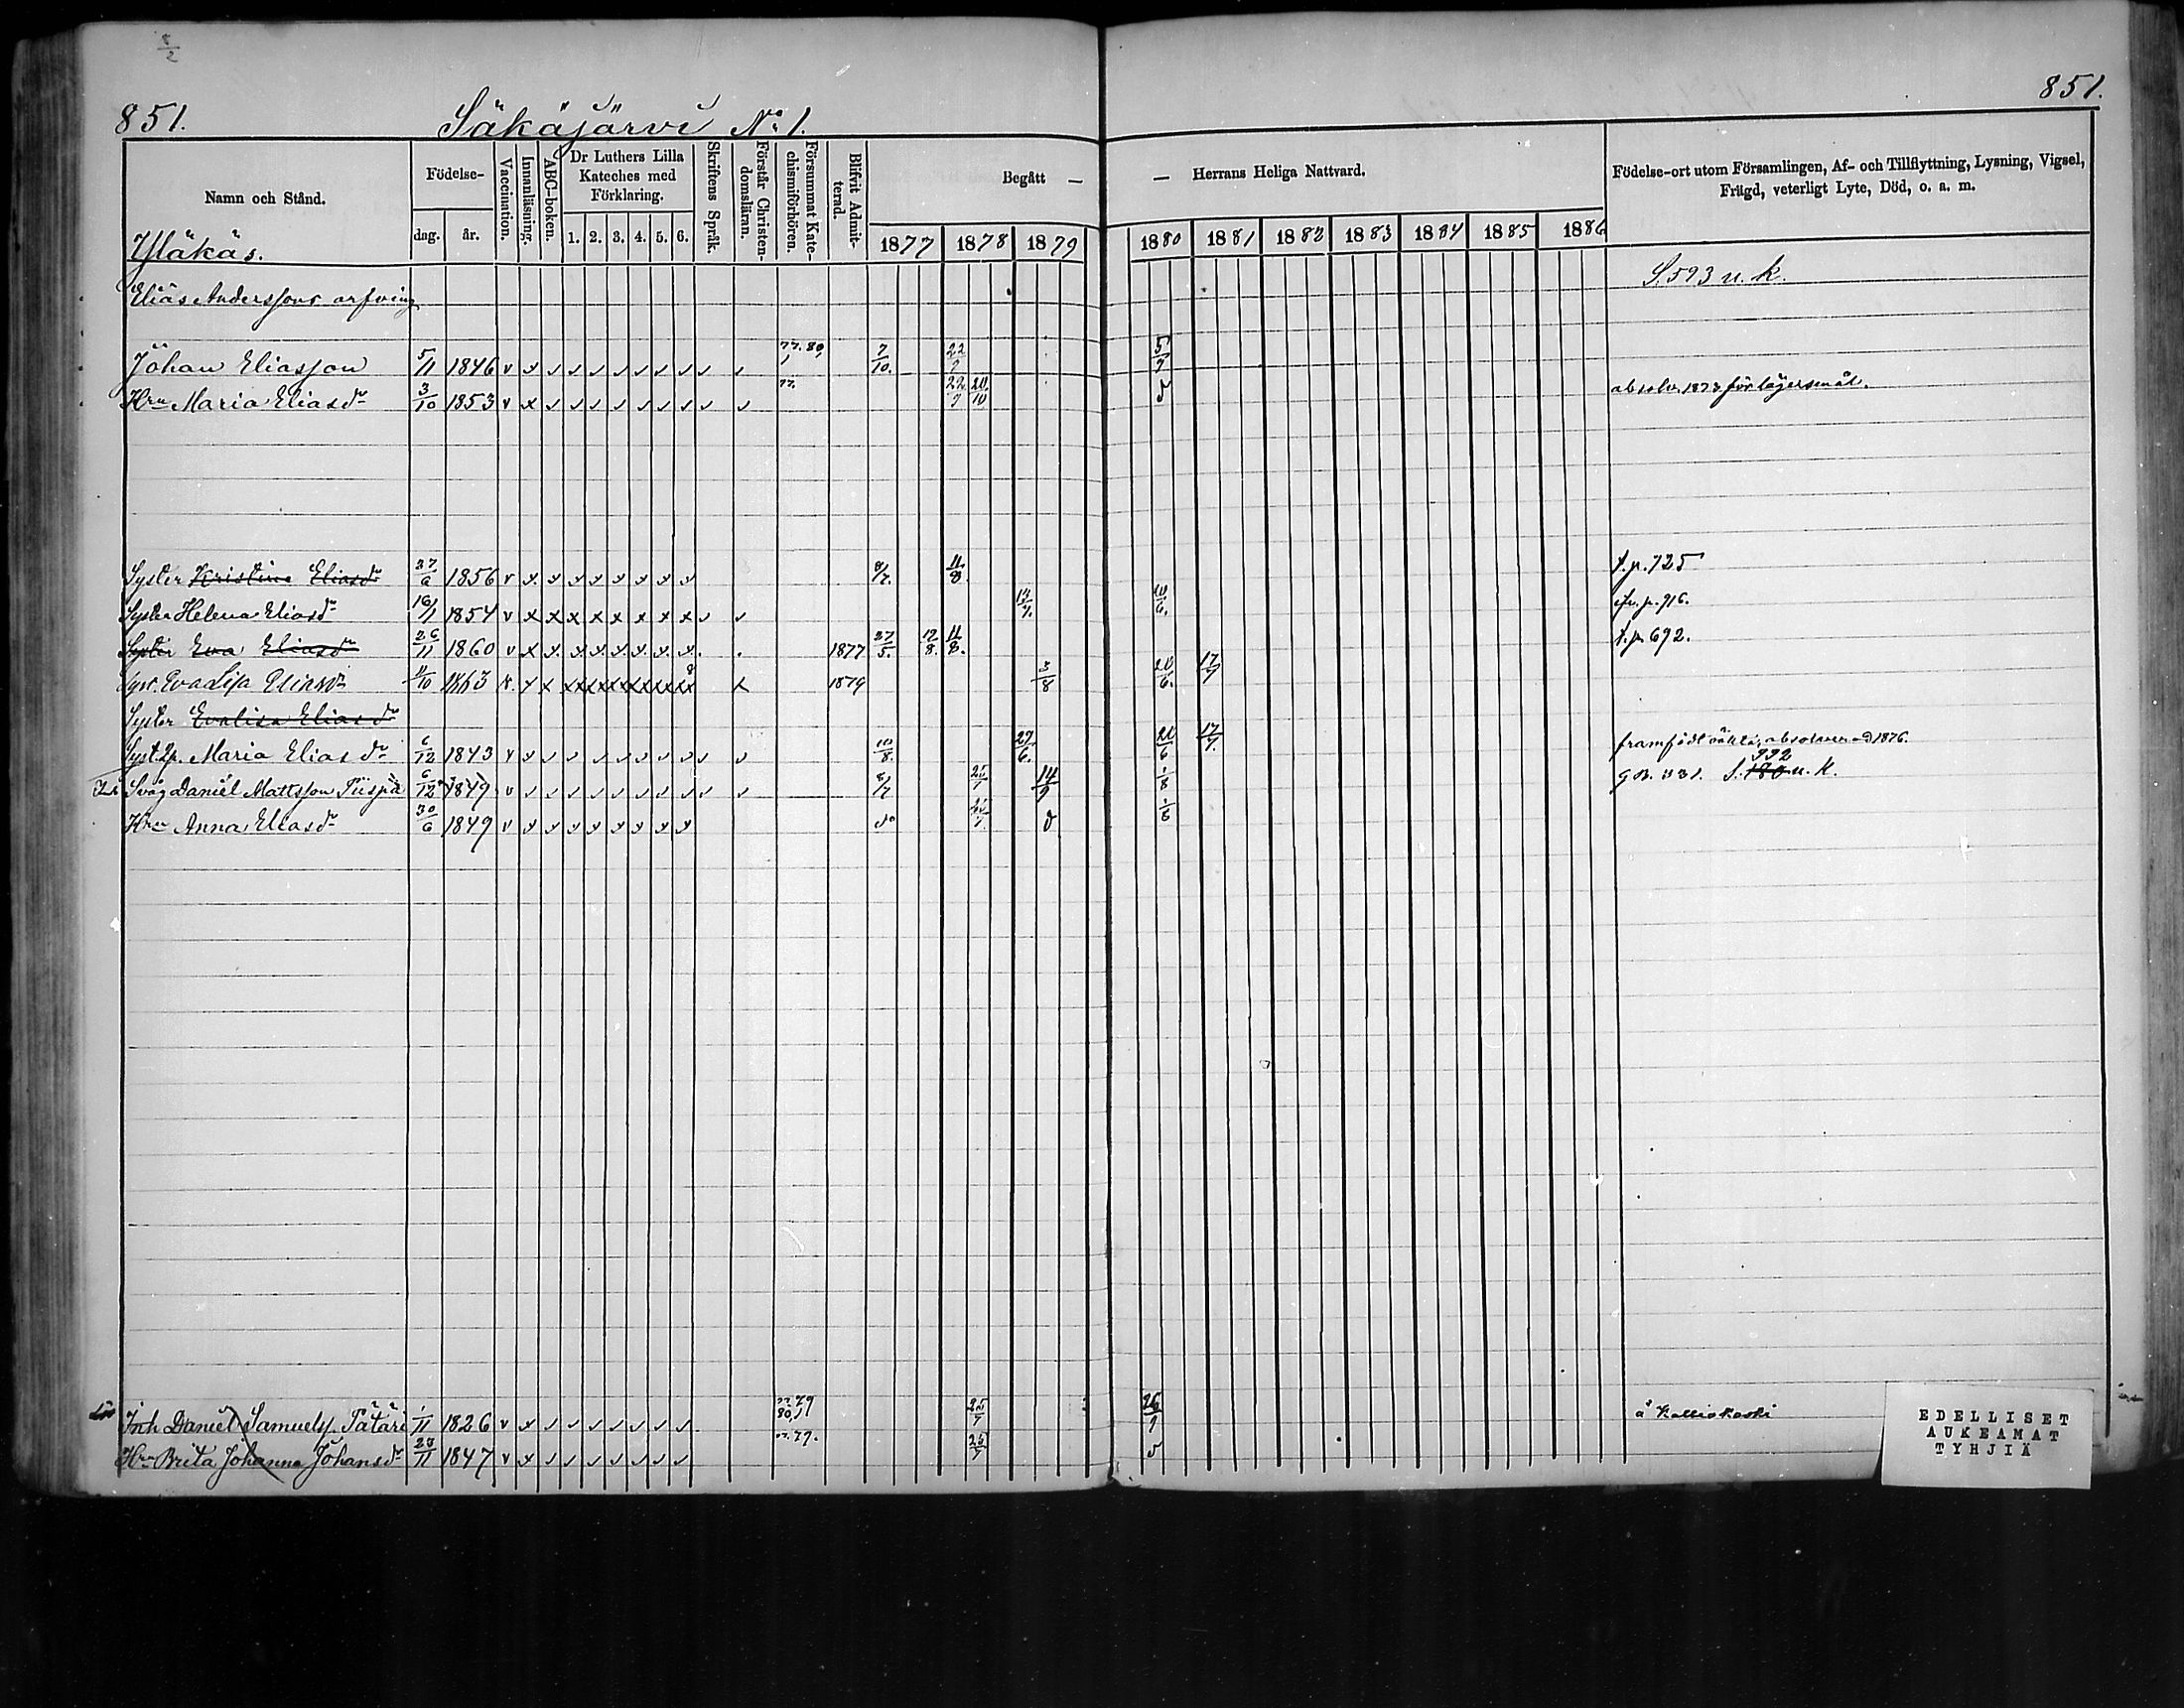 851.
Säkäjärvi No 1.
851.
Namn och Stånd.
Födelse-
dag.
år.
Vaccination.
Innanläsning.
ABC-boken.
Dr Luthers Lilla
Kateches med
Förklaring.
1. 2. 3. 4. 5. 6.
Skriftens Språk.
Förstår Christen-
domsläran.
Försummat Kate-
chismiförhören.
Blifvit Admit-
terad.
Begått —
— Herrans Heliga Nattvard.
1877 1878 1879 1880 1881 1882 1883 1884 1885 1886
Födelse-ort utom Församlingen, Af- och Tillflyttning, Lysning, Vigsel,
Frägd, veterligt Lyte, Död, o. a. m.
Yläkäs.
S. 593 u. k.
Elias Anderssons arfving
Johan Eliasson 5/11 1846 v 77. 80, 7/10. 22/9 5/9
Hru Maria Eliasdr 3/10 1853 v 77. 22/9 20/10 absolv. 1873 för lägersmål.
Syster Kristina Eliasdr 27/6 1856 v 8/7. 11/8. t. p. 725
Syster Helena Eliasdr 16/1 1854 v 20/6. p. 916.
Syster Eva Eliasdr 26/11 1860 v 1877 27/5. 12/8. 11/8. t. p. 692.
Syst. Eva Lisa Eliasdr 1863 1879 3/8 20/6. 17/7
Syster Evalisa Eliasdr
Syst. Maria Eliasdr 6/12 1843 v 10/8. 29/6. 20/6 17/7 framfödt oäkta, absolverad 1876.
Svåg Daniel Mattsson Tiispä 6/12 1849 v 8/7 25/7 14/9 S. 180 992 u. K.
Hru Anna Eliasdr 30/6 1849 v
Inh Daniel Samuelss. Tatari 1/11 1826 v 79 80, 25/7 26/9 å Kalliokoski
Hru Brita Johanna Johansdr 27/11 1847 v 79. 25/7
EDELLISET
AUKEAMAT
TYHJIÄ